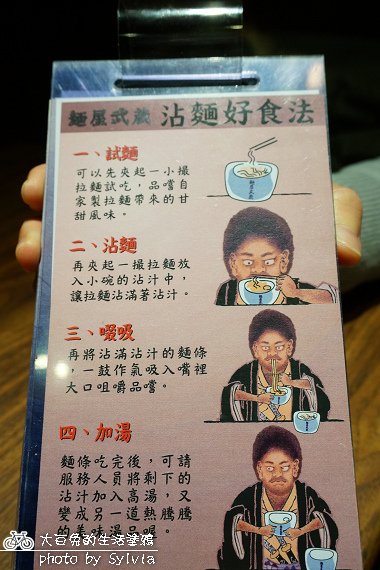 麵屋武藏 沾麵好食法
一、試麵
可以先夾起一小撮
拉麵試吃，品嚐自
家製拉麵帶來的甘
甜風味。
二、沾麵
再夾起一撮拉麵放
入小碗的沾汁中，
讓拉麵沾滿著沾汁。
三、啜吸
再將沾滿沾汁的麵條
，一鼓作氣吸入嘴裡
大口咀嚼品嚐。
四、加湯
麵條吃完後，可請
服務人員將剩下的
沾汁加入高湯，又
變成另一道熱騰騰
的美味湯品喔。
大百兔的生活塗鴉
photo by Sylvia